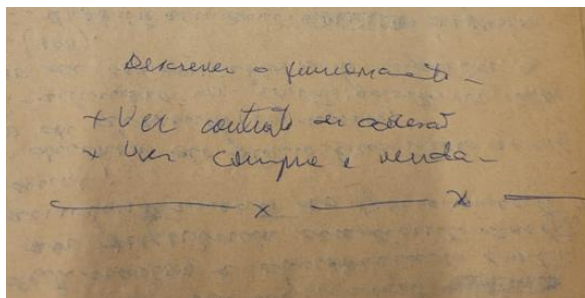 Descrever o funcionamento -
+ Ver contrato de adesão
x Ver compra e venda -
x x